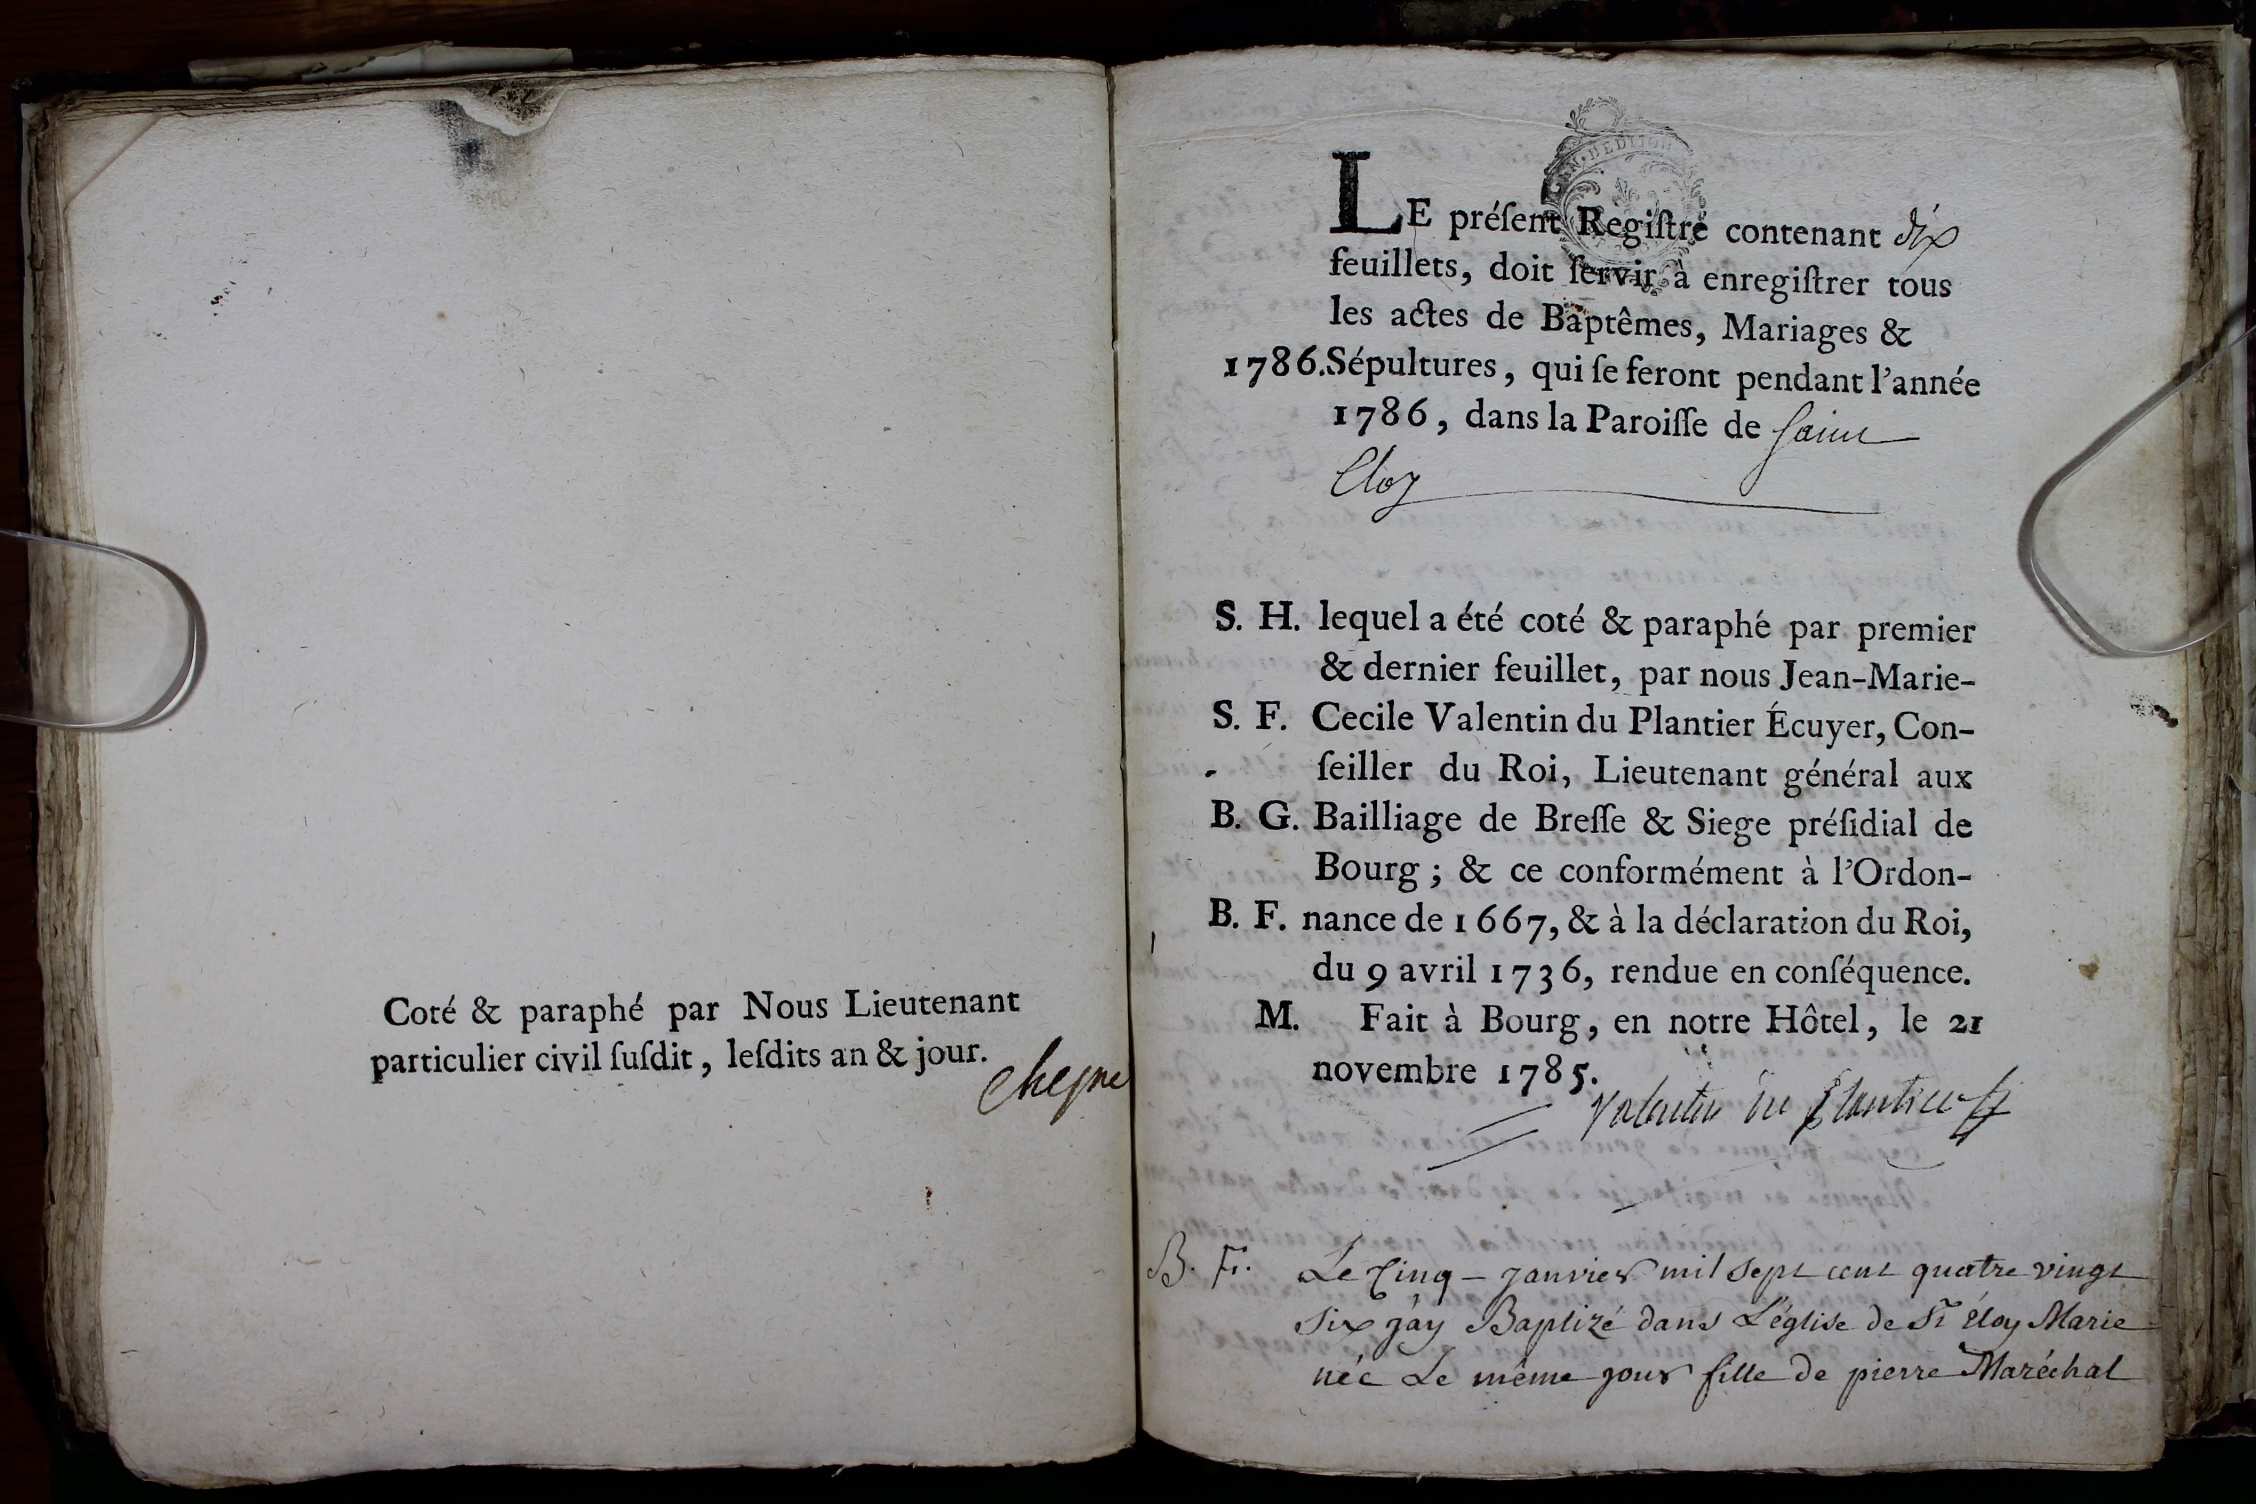 Coté & paraphé par Nous Lieutenant
particulier civil ſuſdit, leſdits an & jour.
LE préſent Regiſtre contenant dix
feuillets, doit ſervir à enregiſtrer tous
les actes de Baptêmes, Mariages &
1786. Sépultures, qui ſe feront pendant l'année
1786, dans la Paroiſſe de Saint
Eloy
S. H. lequel a été coté & paraphé par premier
& dernier feuillet, par nous Jean-Marie-
S. F. Cecile Valentin du Plantier Écuyer, Con-
ſeiller du Roi, Lieutenant général aux
B. G. Bailliage de Breſſe & Siege préſidial de
Bourg ; & ce conformément à l'Ordon-
B. F. nance de 1667, & à la déclaration du Roi,
du 9 avril 1736, rendue en conſéquence.
M. Fait à Bourg, en notre Hôtel, le 21
novembre 1785.
Valentin du Plantier
B. F. Le Cinq janvier mil sept cent quatre vingt
six j'ay Baptizé dans L'église de St Eloy Marie
née Le même jour fille de pierre Maréchal